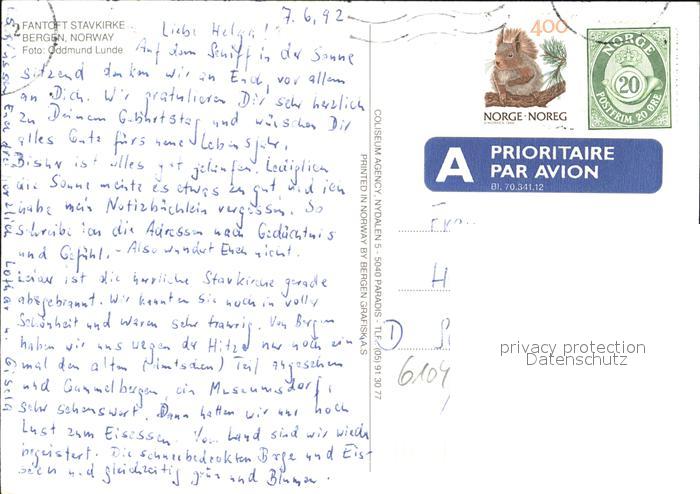 FANTOFT STAVKIRKE
BERGEN, NORWAY
Foto: Oddmund Lunde
7.6.92
Liebe Helga!
Auf dem Schiff in der Sonne
sitzend denken wir an Euch, vor allem
an Dich. Wir gratulieren Dir sehr herzlich
zu Deinem Geburtstag und wünschen Dir
alles Gute fürs neue Lebensjahr.
Bisher ist alles gut gelaufen. Lediglich
die Sonne meinte es etwas zu gut und ich
habe mein Notizbüchlein vergessen. So
schreibe ich die Adressen nach Gedächtnis
und Gefühl. - Also wundert Euch nicht.
Leider ist die herrliche Stavkirche gerade
abgebrannt. Wir kannten sie noch in voller
Schönheit und waren sehr traurig. Von Bergen
haben wir uns wegen der Hitze nur noch ein-
mal den alten Teil angesehen
und Gammelbergen, ein Museumsdorf,
sehr sehenswert. Dann hatten wir nur noch
Lust zum Eisessen. Vom Land sind wir wieder
begeistert. Die schneebedeckten Berge und Eis-
seen und gleichzeitig grün und Blumen.
Es grüssen Euch herzlich Lothar u. Gisela
COLISEUM AGENCY, NYDALEN 5 - 5040 PARADIS - TLF. (05) 91 30 77
PRINTED IN NORWAY BY BERGEN GRAFISK A.S
400
NORGE·NOREG
NORGE
20
POSTFRIM. 20 ØRE
A PRIORITAIRE
PAR AVION
Bl. 70.341.12
6104
privacy protection
Datenschutz